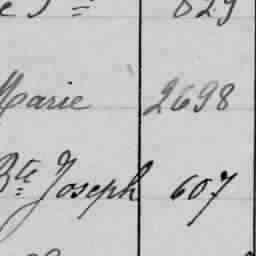 829
Marie 2698
Bte Joseph 607